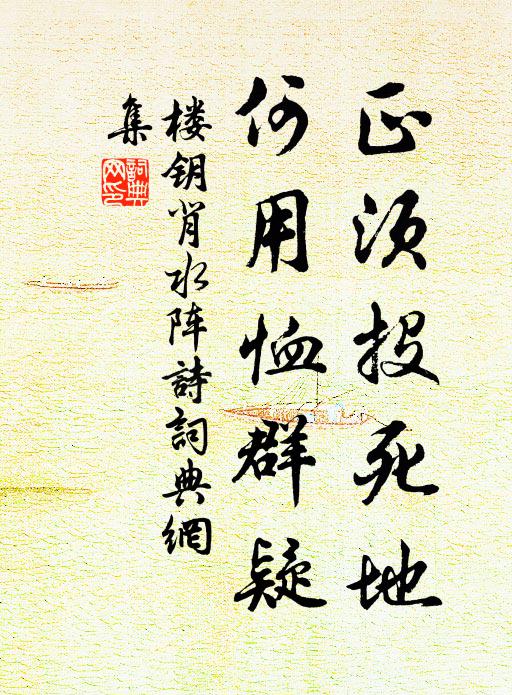 正须投死地
何用恤群疑
楼钥肖水阵詩詞典網
集
詞典网印